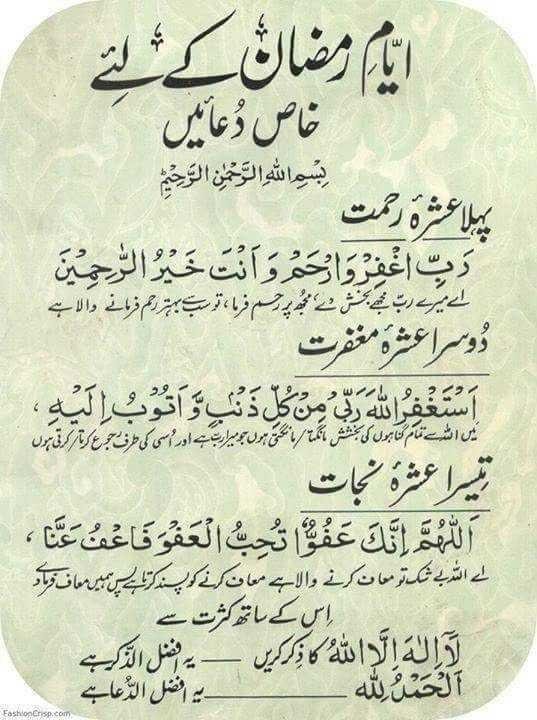 ایّامِ رمضان کے لئے
خاص دُعائیں
بِسْمِ اللهِ الرَّحْمٰنِ الرَّحِيْمِ
پہلا عشرۂ رحمت
رَبِّ اغْفِرْ وَارْحَمْ وَاَنْتَ خَيْرُ الرَّاحِمِيْنَ
اے میرے ربّ مجھے بخش دے، مجھ پر رحم فرما، تو سب سے بہتر رحم فرمانے والا ہے
دُوسرا عشرۂ مغفرت
اَسْتَغْفِرُ اللهَ رَبِّىْ مِنْ كُلِّ ذَنْۢبٍ وَّاَتُوْبُ اِلَيْهِ ،
میں اللہ سے تمام گناہوں کی بخشش مانگتا/مانگتی ہوں جو میرا رب ہے اور اُسی کی طرف رجوع کرتا/کرتی ہوں
تیسرا عشرۂ نجات
اَللّٰهُمَّ اِنَّكَ عَفُوٌّ تُحِبُّ الْعَفْوَ فَاعْفُ عَنَّا ،
اے اللہ بے شک تو معاف کرنے والا ہے معاف کرنے کو پسند کرتا ہے پس ہمیں معاف فرما دے
اِس کے ساتھ کثرت سے
لَآ اِلٰهَ اِلَّا اللهُ کا ذکر کریں — یہ افضل الذّکر ہے
اَلْحَمْدُ لِلّٰهِ — یہ افضل الدُّعا ہے
FashionCrisp.com